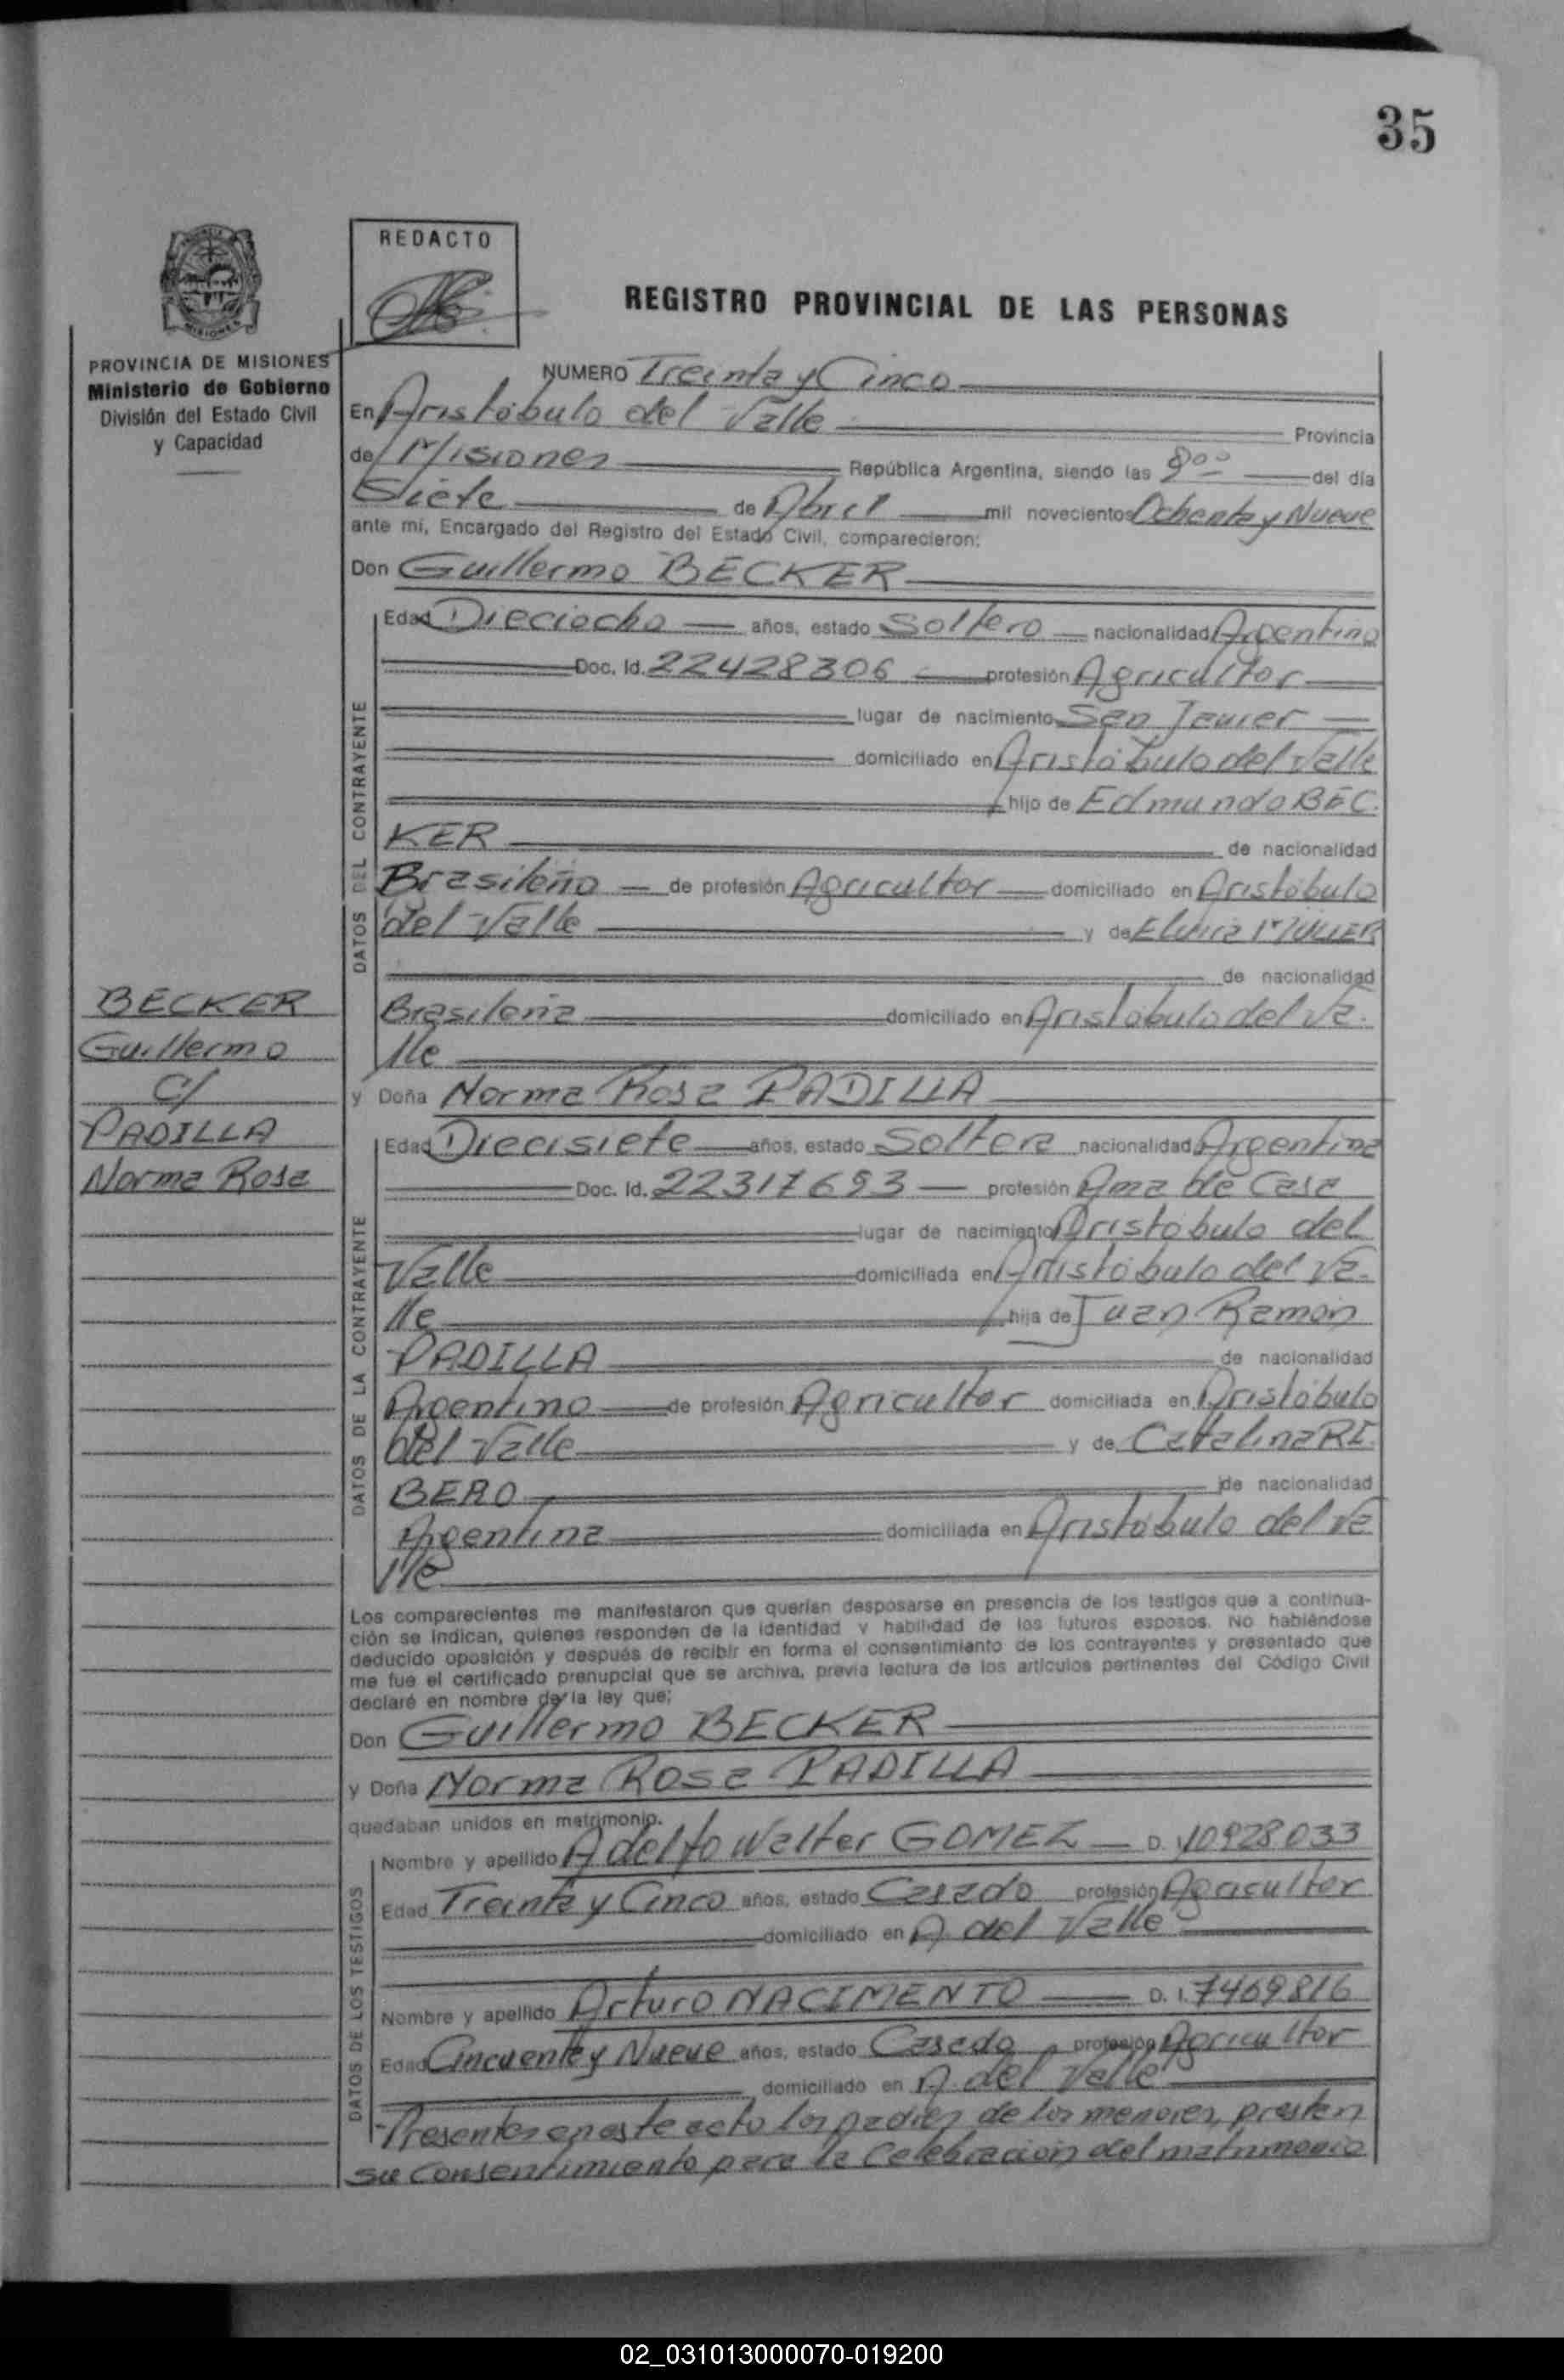 35
REDACTO
REGISTRO PROVINCIAL DE LAS PERSONAS
MISIONES
PROVINCIA DE MISIONES
Ministerio de Gobierno
División del Estado Civil
y Capacidad
NUMERO Treinta y Cinco
En Aristóbulo del Valle Provincia
de Misiones República Argentina, siendo las 9ºº del día
Siete de Abril mil novecientos Ochenta y Nueve
ante mí, Encargado del Registro del Estado Civil, comparecieron:
Don Guillermo BECKER
DATOS DEL CONTRAYENTE
Edad Dieciocho años, estado Soltero nacionalidad Argentino
Doc. Id. 22428306 profesión Agricultor
lugar de nacimiento San Javier
domiciliado en Aristóbulo del Valle
hijo de Edmundo BEC-
KER de nacionalidad
Brasileño de profesión Agricultor domiciliado en Aristóbulo
del Valle y de Elvira MÜLLER
de nacionalidad
Brasileña domiciliado en Aristóbulo del Va-
lle
BECKER
Guillermo
C/
PADILLA
Norma Rosa
y Doña Norma Rosa PADILLA
DATOS DE LA CONTRAYENTE
Edad Diecisiete años, estado Soltera nacionalidad Argentina
Doc. Id. 22317693 profesión Ama de Casa
lugar de nacimiento Aristóbulo del
Valle domiciliada en Aristóbulo del Va-
lle hija de Juan Ramón
PADILLA de nacionalidad
Argentino de profesión Agricultor domiciliada en Aristóbulo
del Valle y de Catalina RI-
BERO de nacionalidad
Argentina domiciliada en Aristóbulo del Va
lle
Los comparecientes me manifestaron que querían desposarse en presencia de los testigos que a continua-
ción se indican, quienes responden de la identidad y habilidad de los futuros esposos. No habiéndose
deducido oposición y después de recibir en forma el consentimiento de los contrayentes y presentado que
me fue el certificado prenupcial que se archiva, previa lectura de los artículos pertinentes del Código Civil
declaré en nombre de la ley que:
Don Guillermo BECKER
y Doña Norma Rosa PADILLA
quedaban unidos en matrimonio.
DATOS DE LOS TESTIGOS
Nombre y apellido Adelfo Walter GOMEZ D. I. 10928033
Edad Treinta y Cinco años, estado Casado profesión Agricultor
domiciliado en A. del Valle
Nombre y apellido Arturo NACIMENTO D. I. 7469816
Edad Cincuenta y Nueve años, estado Casado profesión Agricultor
domiciliado en A. del Valle
-Presentes en este acto los padres de los menores, prestan
su consentimiento para la Celebración del matrimonio
02_031013000070-019200